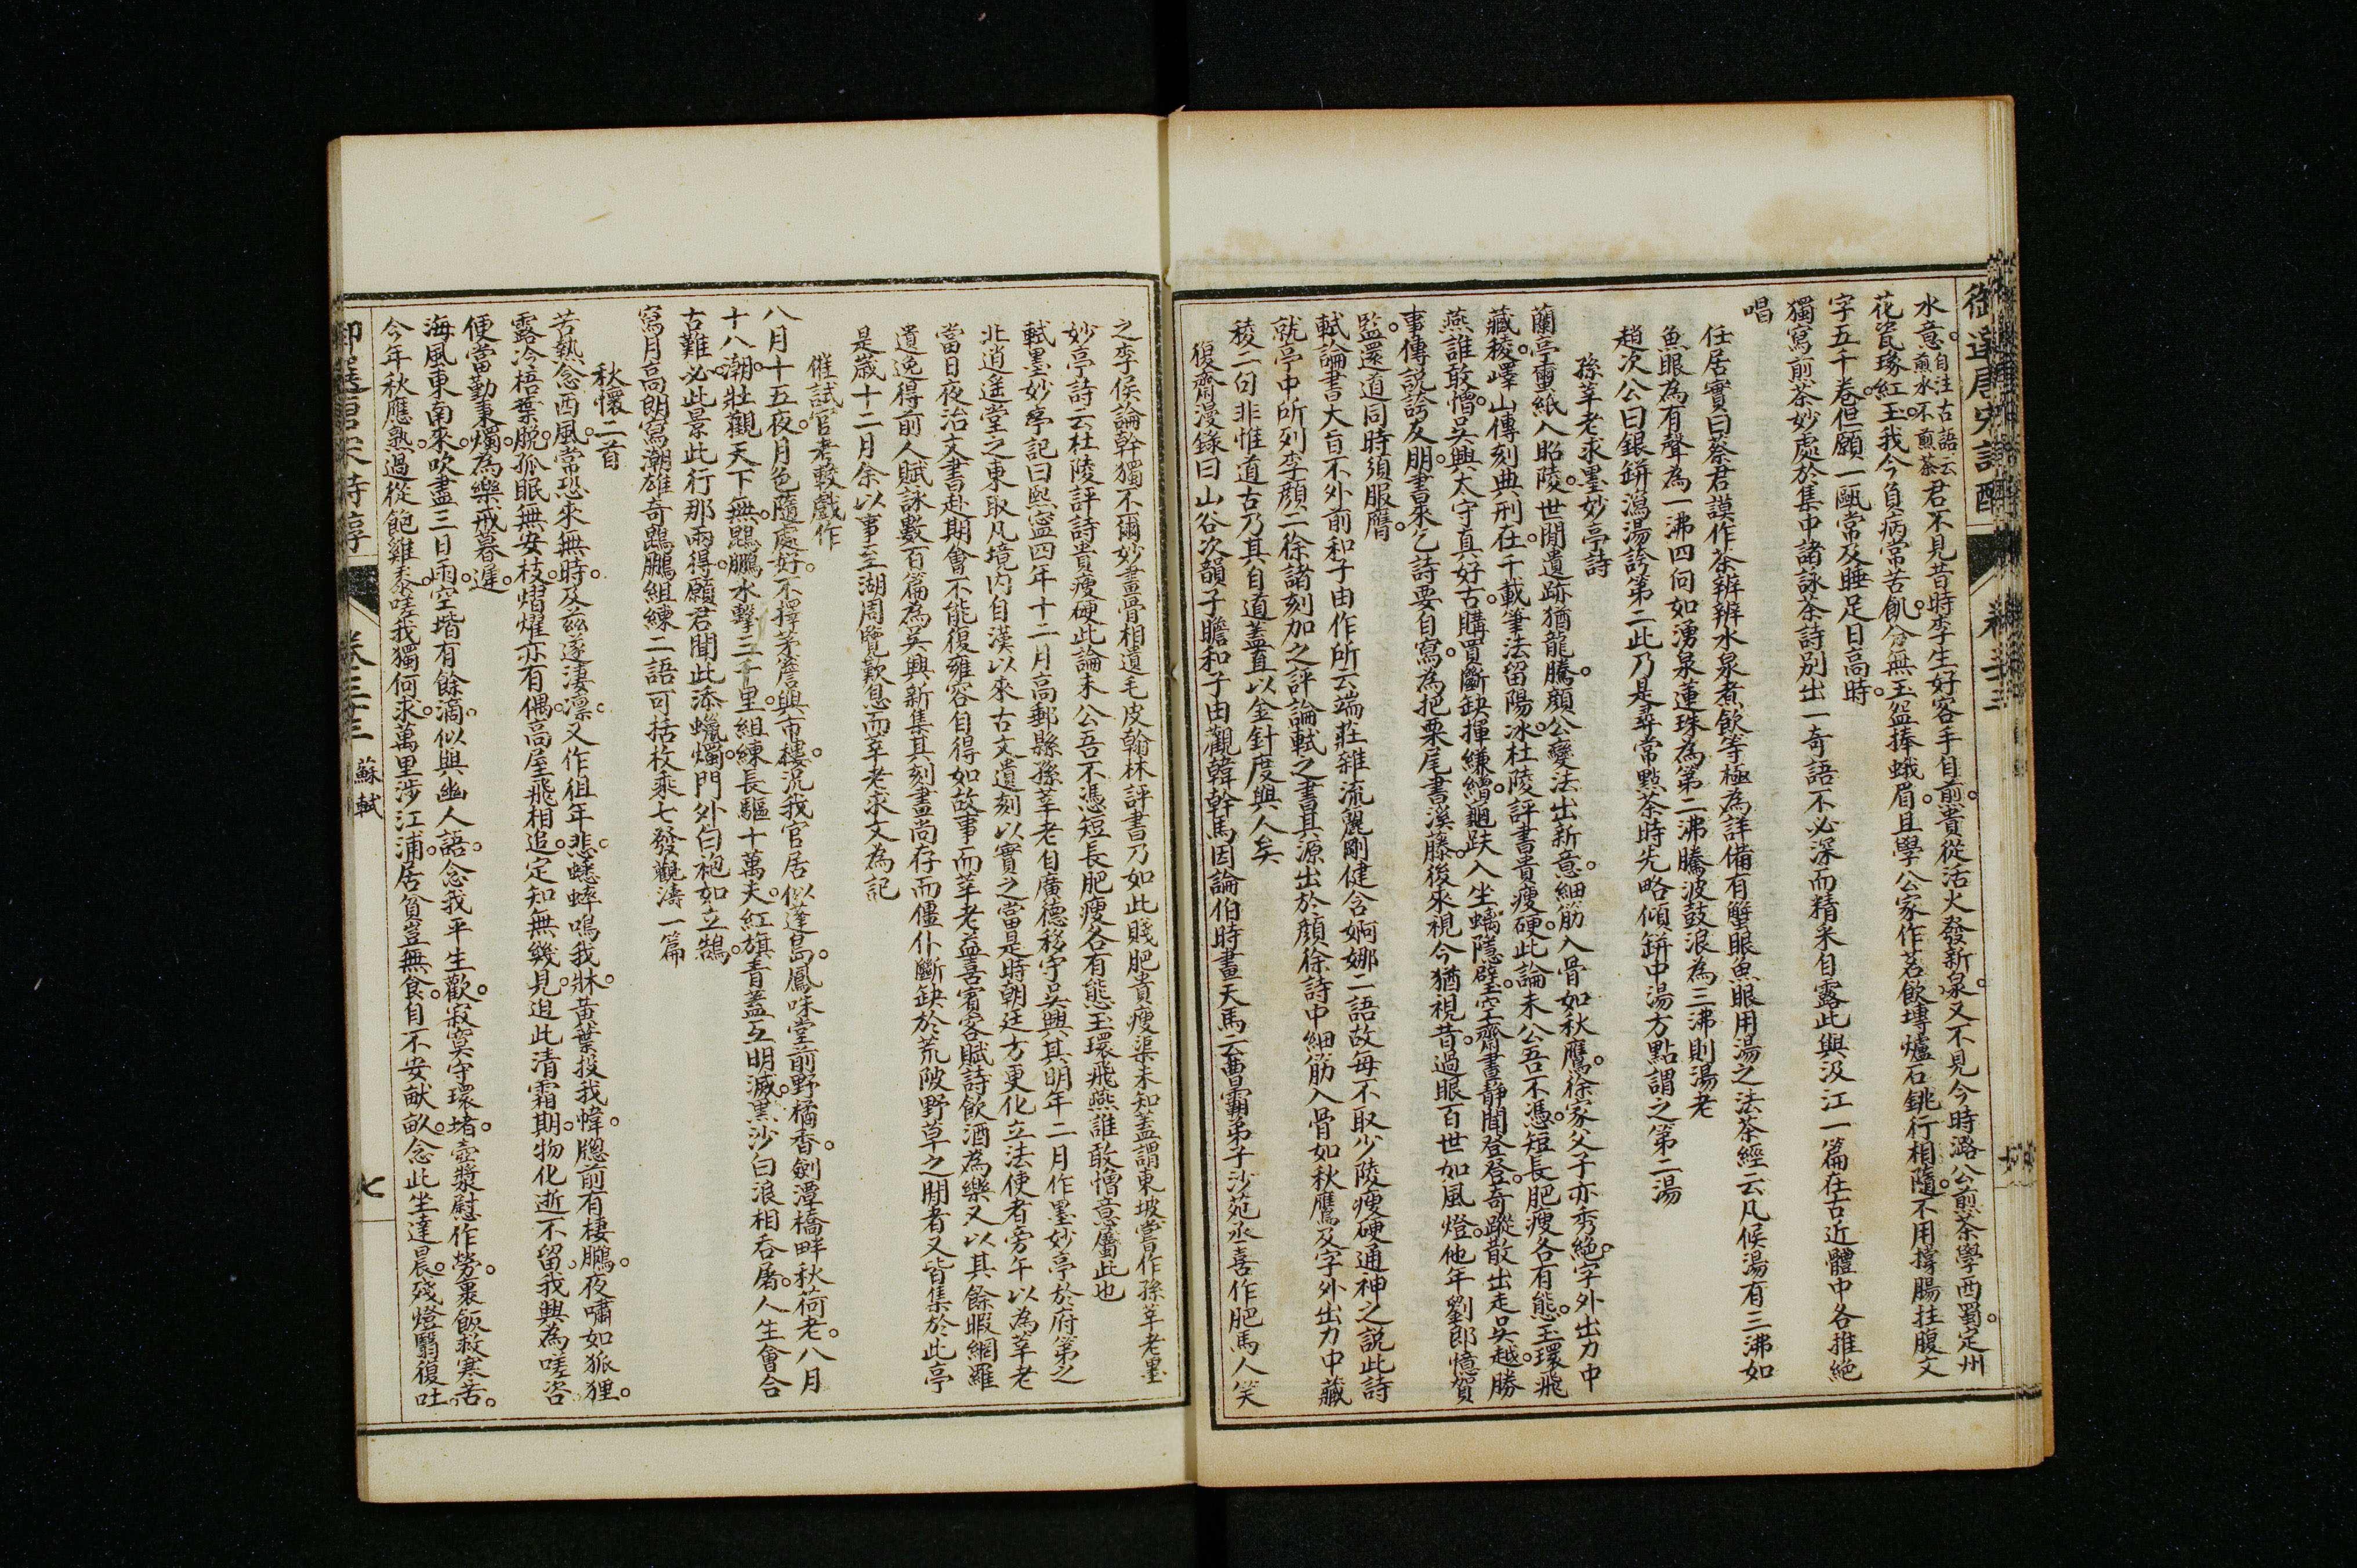 水意自注古語云煎水不煎茶君不見昔時李生好客手自煎貴從活火發新泉又不見今時潞公煎茶學西蜀定州
花瓷琢紅玉我今貧病常苦飢分無玉盌捧蛾眉且學公家作茗飲塼爐石銚行相隨不用撐腸拄腹文
字五千卷但願一甌常及睡足日高時
獨寫煎茶妙處於集中諸詠茶詩別出一奇語不必深而精采自露此與汲江一篇在古近體中各推絕
唱
任居實曰蔡君謨作茶辨辨水泉煮飲等極為詳備有蟹眼魚眼用湯之法茶經云凡候湯有三沸如
魚眼為有聲為一沸四向如湧泉蓮珠為第二沸騰波鼓浪為三沸則湯老
趙次公曰銀缾瀉湯誇第二此乃是尋常點茶時先略傾缾中湯方點謂之第二湯
孫莘老求墨妙亭詩
蘭亭蠒紙入昭陵世閒遺跡猶龍騰顏公變法出新意細筋入骨如秋鷹徐家父子亦秀絕字外出力中
藏稜嶧山傳刻典刑在千載筆法留陽冰杜陵評書貴瘦硬此論未公吾不憑短長肥瘦各有態玉環飛
燕誰敢憎吳興太守真好古購買斷缺揮縑繒龜趺入坐螭隱壁空齋晝靜聞登登奇蹤散出走吳越勝
事傳說誇友朋書來乞詩要自寫為把栗尾書溪藤後來視今猶視昔過眼百世如風燈他年劉郎憶賀
監還道同時須服膺
軾論書大旨不外前和子由作所云端莊雜流麗剛健含婀娜二語故每不取少陵瘦硬通神之說此詩
就亭中所列李顏二徐諸刻加之評論軾之書其源出於顏徐詩中細筋入骨如秋鷹及字外出力中藏
稜二句非惟道古乃其自道蓋直以金針度與人矣
復齋漫錄曰山谷次韻子瞻和子由觀韓幹馬因論伯時畫天馬云曹霸弟子沙苑丞喜作肥馬人笑
之李侯論幹獨不爾妙畫骨相遺毛皮翰林評書乃如此賤肥貴瘦渠未知蓋謂東坡嘗作孫莘老墨
妙亭詩云杜陵評詩貴瘦硬此論未公吾不憑短長肥瘦各有態玉環飛燕誰敢憎意屬此也
軾墨妙亭記曰熙寧四年十二月高郵縣孫莘老自廣德移守吳興其明年二月作墨妙亭於府第之
北逍遙堂之東取凡境內自漢以來古文遺刻以實之當是時朝廷方更化立法使者旁午以為莘老
當日夜治文書赴期會不能復雍容自得如故事而莘老益喜賓客賦詩飲酒為樂又以其餘暇網羅
遺逸得前人賦詠數百篇為吳興新集其刻畫尚存而僵仆斷缺於荒陂野草之閒者又皆集於此亭
是歲十二月余以事至湖周覽歎息而莘老求文為記
催試官考較戲作
八月十五夜月色隨處好不擇茅簷與市樓況我官居似蓬島鳳咮堂前野橘香劍潭橋畔秋荷老八月
十八潮壯觀天下無鵾鵬水擊三千里組練長驅十萬夫紅旗青蓋互明滅黑沙白浪相吞屠人生會合
古難必此景此行那兩得願君聞此添蠟燭門外白袍如立鵠
寫月高朗寫潮雄奇鵾鵬組練二語可括枚乘七發觀濤一篇
秋懷二首
苦熱念西風常恐來無時及茲遂淒凜又作徂年悲蟋蟀鳴我牀黃葉投我幃牕前有棲鵩夜嘯如狐狸
露冷梧葉脫孤眠無安枝熠燿亦有偶高屋飛相追定知無幾見迫此清霜期物化逝不留我興為嗟咨
便當勤秉燭為樂戒暮遲
海風東南來吹盡三日雨空堦有餘滴似與幽人語念我平生歡寂寞守環堵壺漿慰作勞裹飯救寒苦
今年秋應熟過從飽雞黍嗟我獨何求萬里涉江浦居貧豈無食自不安畎畝念此坐達晨殘燈翳復吐
卷三十三
蘇軾
七